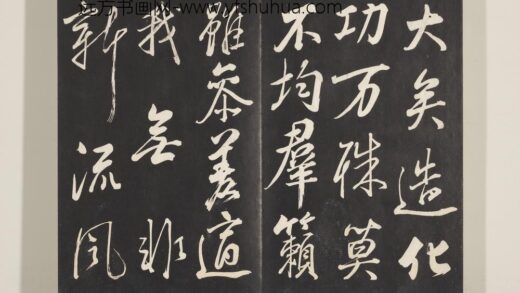 方书画网-www.yfshuhua.com
大矣造化
功万殊莫
不均羣籟
雖叅差適
我無非
新流風